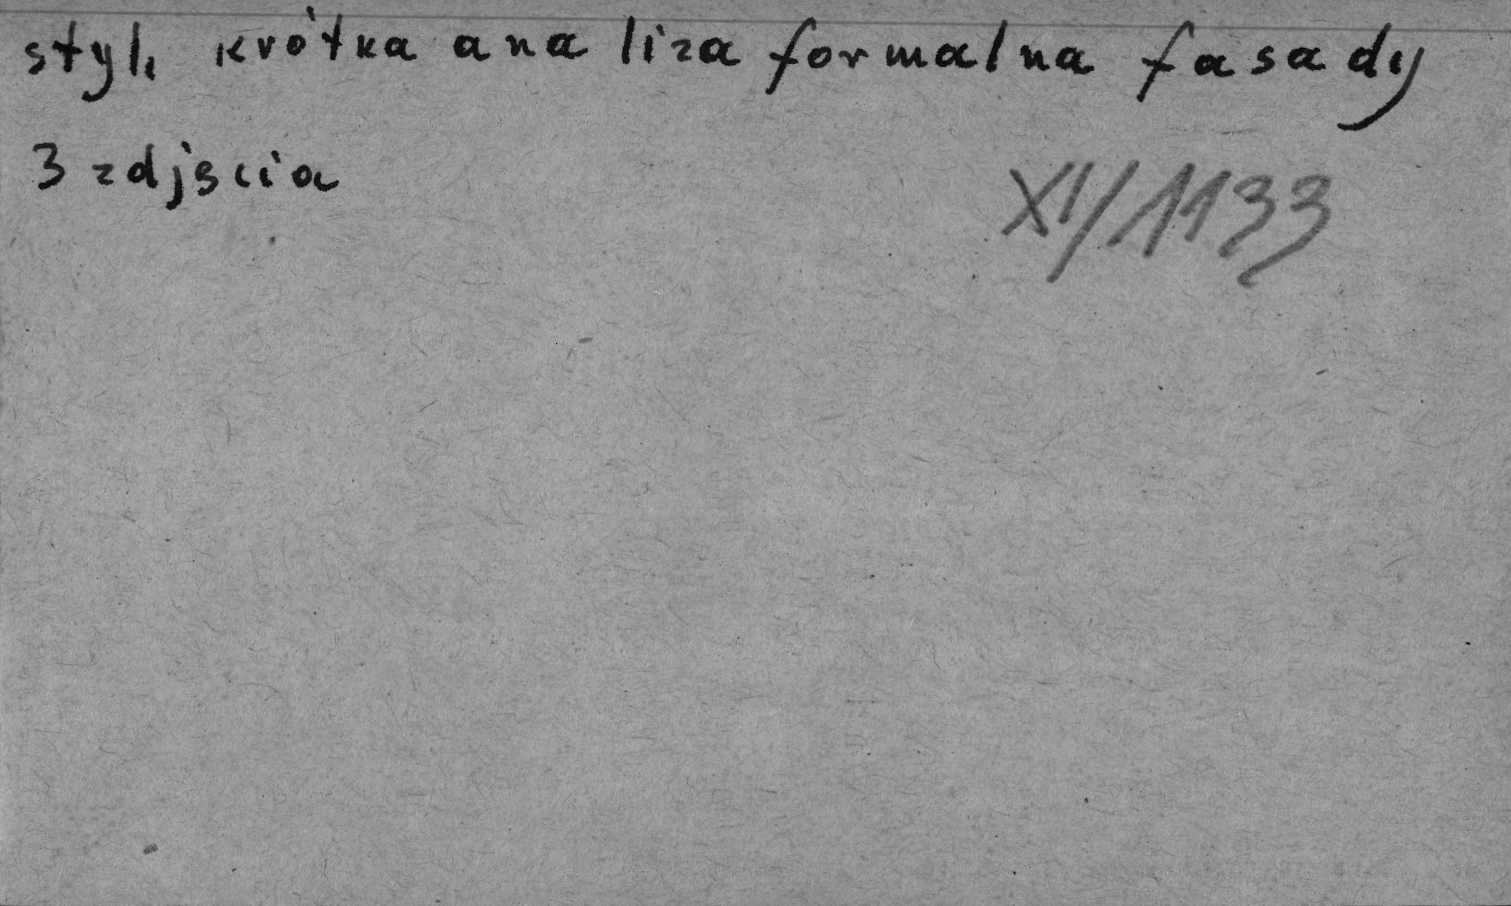 styl, krótka analiza formalna fasady
3 zdjscia
XI/1133